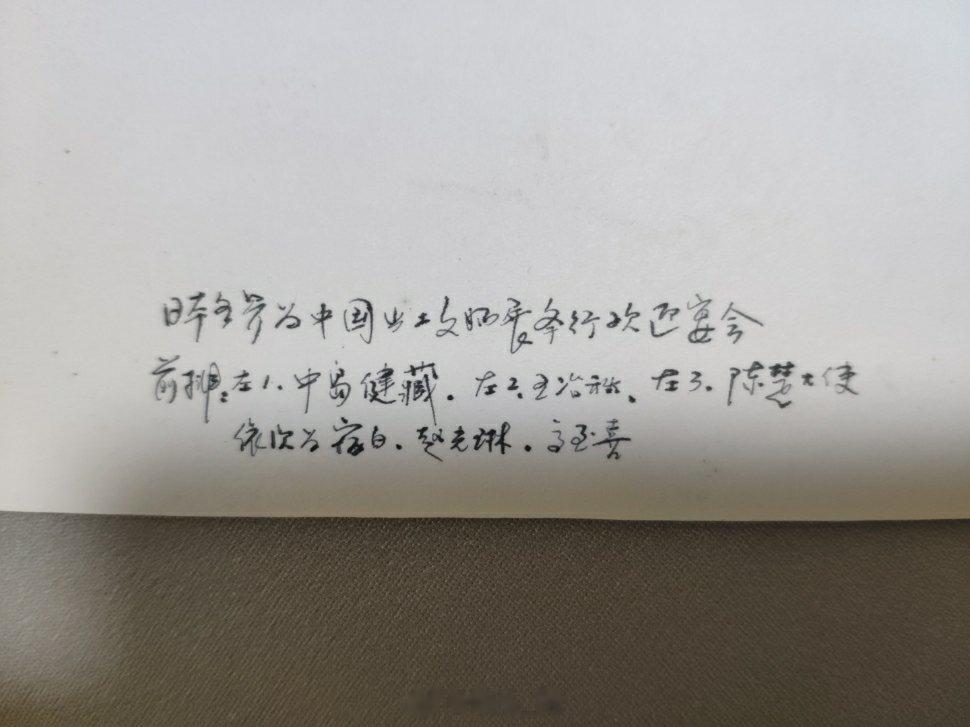 日本各界为中国出土文物展举行欢迎宴会
前排:左1.中岛健藏.左2.王冶秋.左3.陈楚大使
依次为宿白.赵光林.高至喜